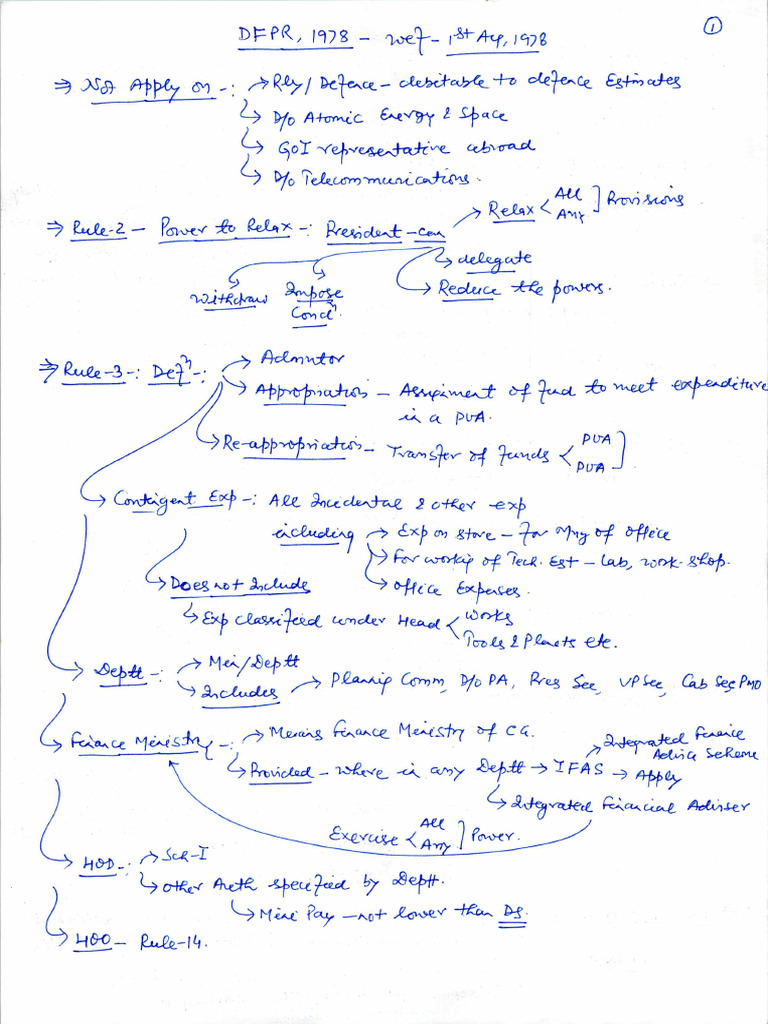 ①
DFPR, 1978 – wef – 1st Aug, 1978
⇒ Not Apply on –: → Rly/Defence – debitable to defence Estimates
↳ D/o Atomic Energy & Space
↳ GoI representative abroad
↳ D/o Telecommunications.
⇒ Rule-2 – Power to Relax –: President – can
→ Relax < All Any ] Provisions
↳ delegate
↳ Reduce the powers.
Withdraw Impose Condn.
⇒ Rule-3 –: Defn –: → Admntor
→ Appropriation – Assignment of Fund to meet expenditure
in a PUA.
↳ Re-appropriation – Transfer of Funds < PUA PUA ]
→ Contingent Exp –: All Incidental & other exp
including → Exp on store – For Mng of office
→ For workig of Tech. Est – Lab, work-shop.
→ office Expenses.
↳ Does not Include
↳ Exp classified under Head < works
Tools & Plants etc.
→ Deptt –: → Min/Deptt
→ Includes → Plannig Comm, D/o PA, Pres Sec, VP Sec, Cab Sec, PMO
→ Finance Ministry –: → Means Finance Ministry of CG.
↳ Provided – where in any Deptt → IFAS → Apply
Integrated Finance
Advisor Scheme
↳ Integrated Financial Adviser
Exercise < All Any ] Power.
→ HOD –: → Sch-I
↳ other Auth specified by Deptt.
↳ Mini Pay – not lower than DS.
→ HOO – Rule-14.